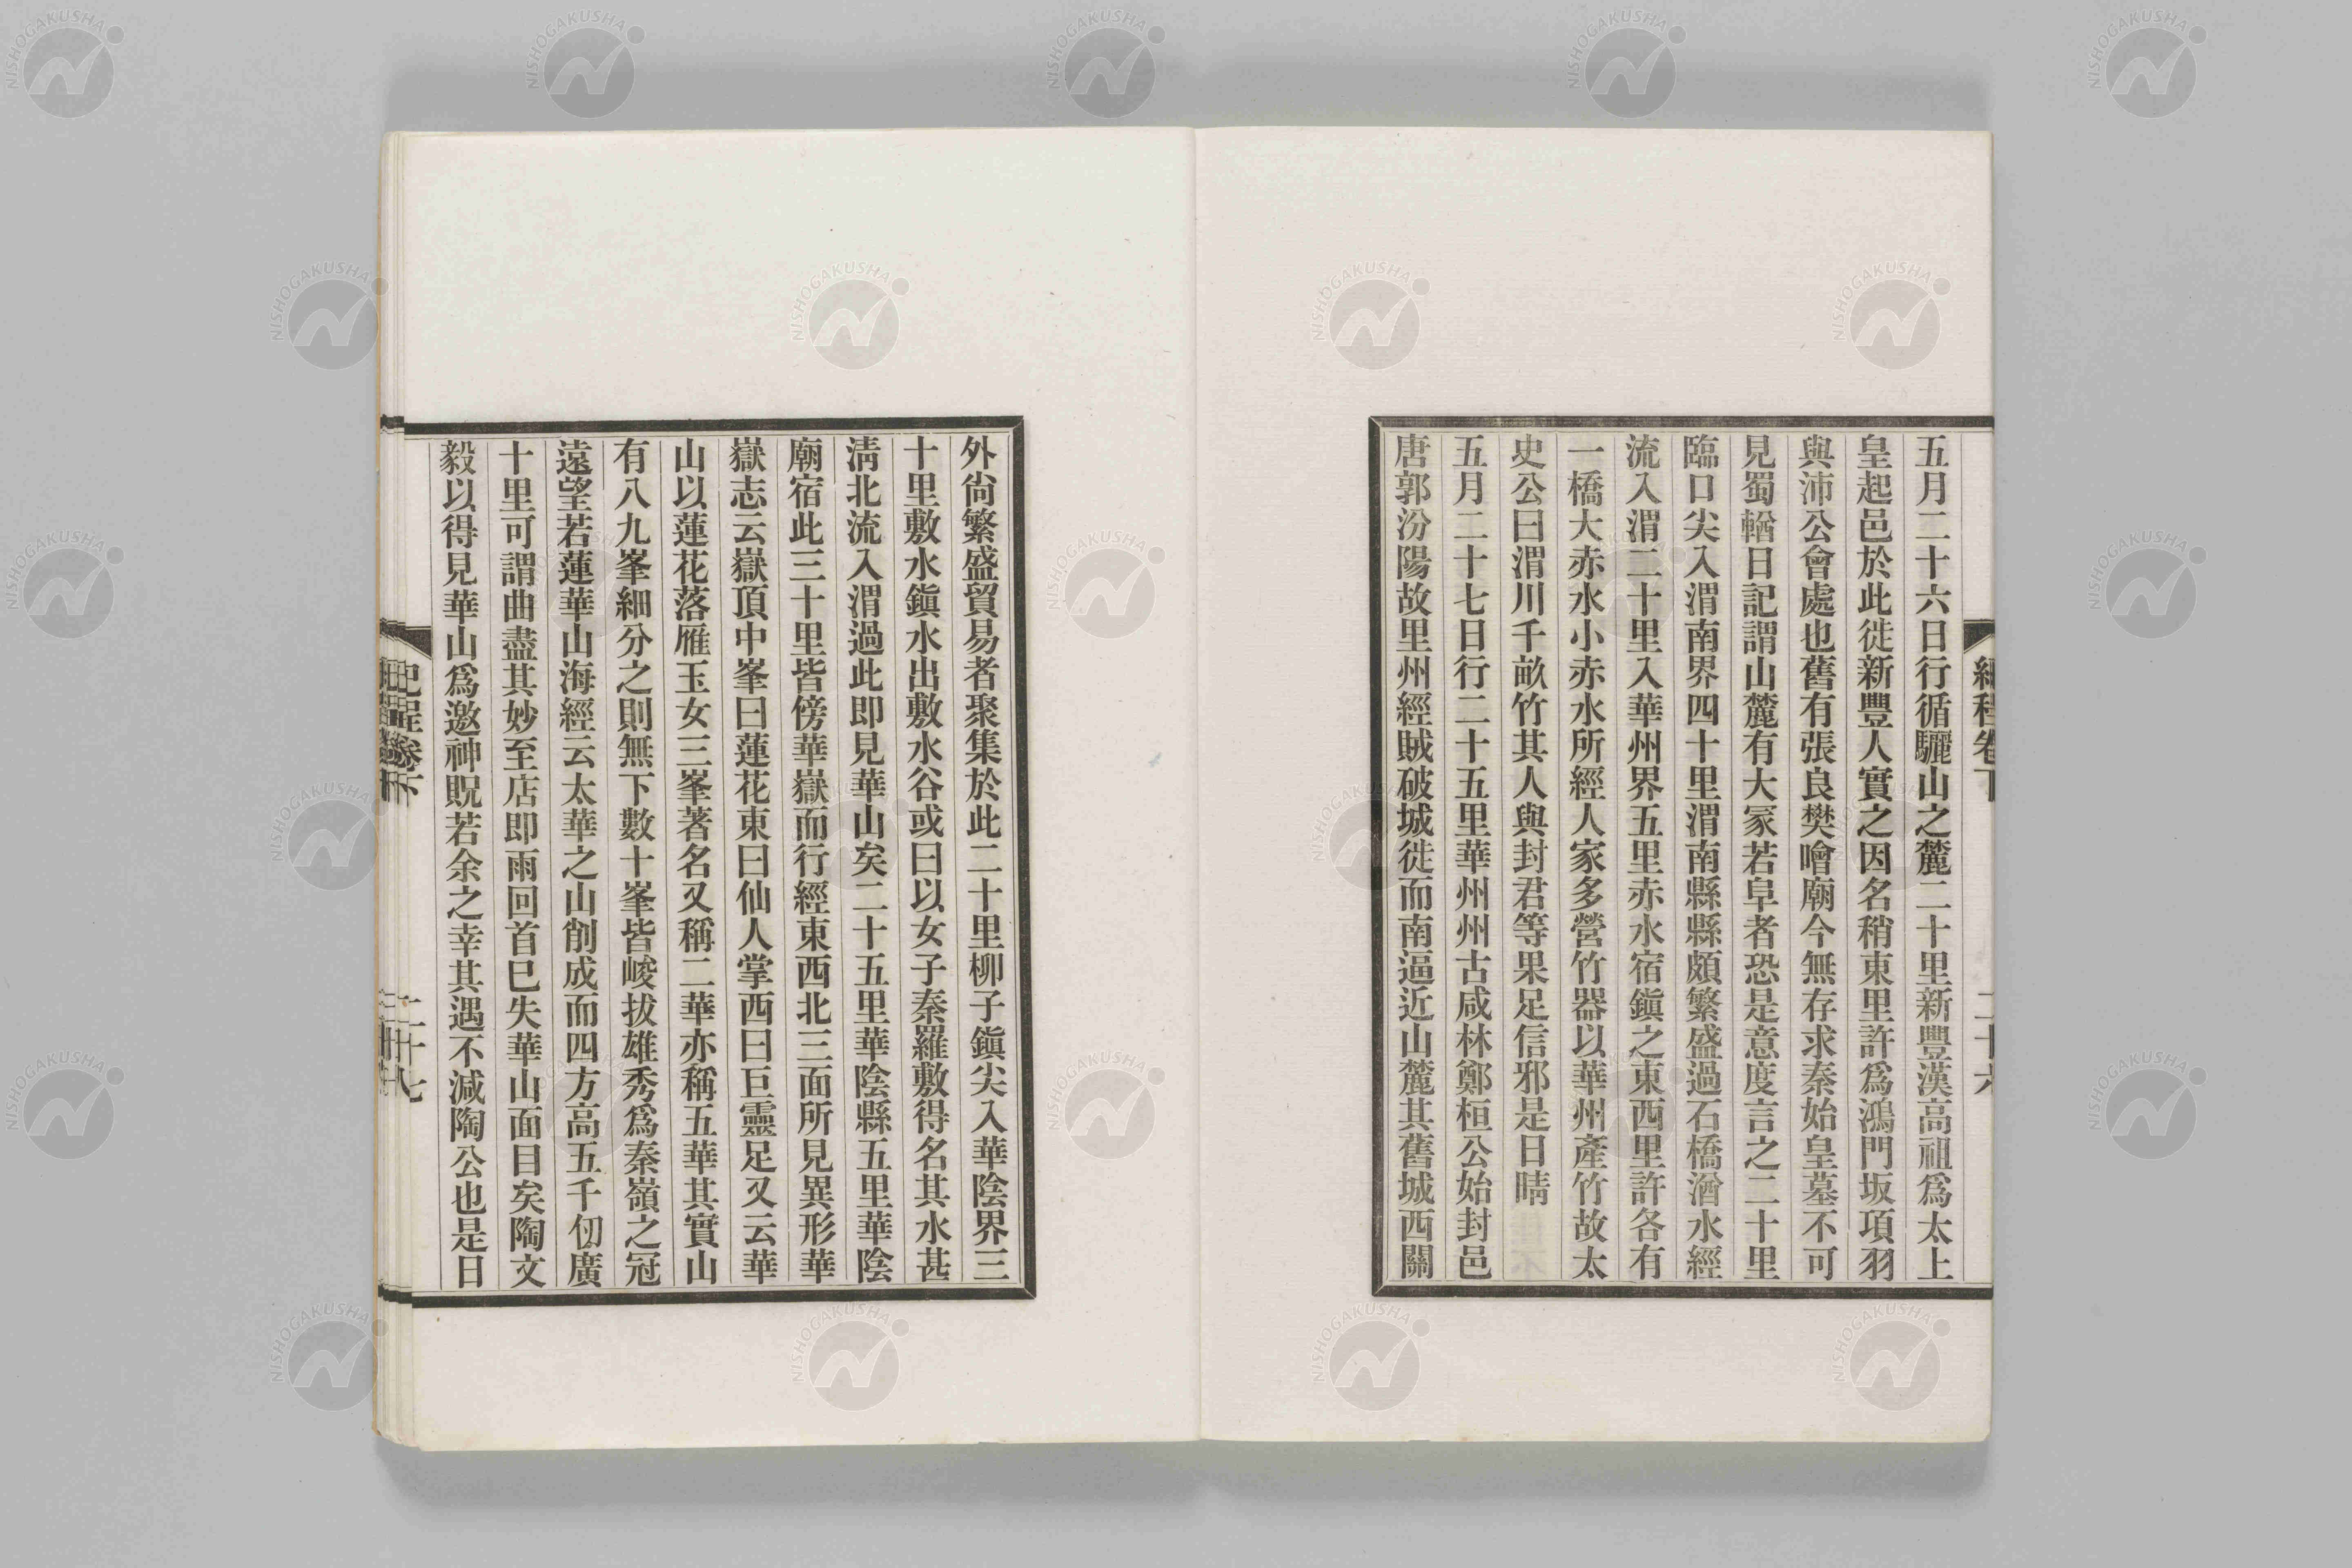 五月二十六日行循驪山之麓二十里新豐漢高祖爲太上
皇起邑於此徙新豐人實之因名稍東里許爲鴻門坂項羽
與沛公會處也舊有張良樊噲廟今無存求秦始皇墓不可
見蜀輶日記謂山麓有大冢若阜者恐是意度言之二十里
臨口尖入渭南界四十里渭南縣縣頗繁盛過石橋湭水經
流入渭二十里入華州界五里赤水宿鎭之東西里許各有
一橋大赤水小赤水所經人家多營竹器以華州產竹故太
史公曰渭川千畝竹其人與封君等果足信邪是日晴
五月二十七日行二十五里華州州古咸林鄭桓公始封邑
唐郭汾陽故里州經賊破城徙而南逼近山麓其舊城西關
外尙繁盛貿易者聚集於此二十里柳子鎭尖入華陰界三
十里敷水鎭水出敷水谷或曰以女子秦羅敷得名其水甚
淸北流入渭過此即見華山矣二十五里華陰縣五里華陰
廟宿此三十里皆傍華嶽而行經東西北三面所見異形華
嶽志云嶽頂中峯曰蓮花東曰仙人掌西曰巨靈足又云華
山以蓮花落雁玉女三峯著名又稱二華亦稱五華其實山
有八九峯細分之則無下數十峯皆峻拔雄秀爲秦嶺之冠
遠望若蓮華山海經云太華之山削成而四方高五千仞廣
十里可謂曲盡其妙至店即雨回首已失華山面目矣陶文
毅以得見華山爲邀神貺若余之幸其遇不減陶公也是日
紀程卷下
二十七
NISHOGAKUSHA